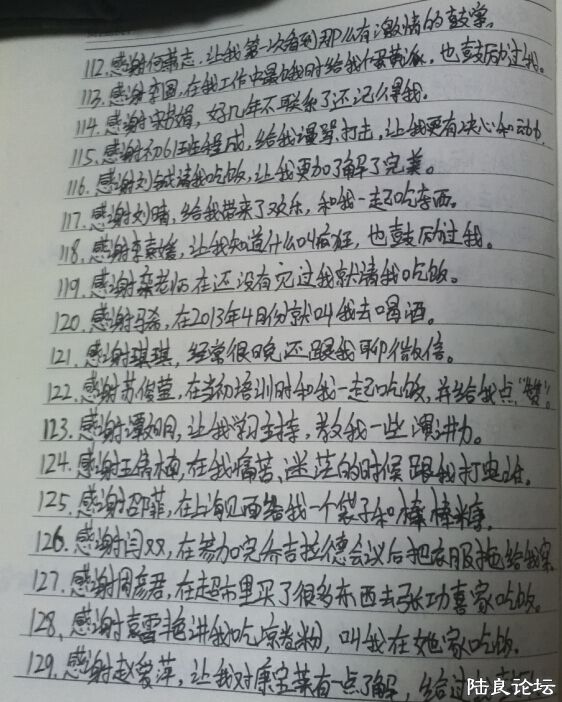 112.感谢何甫志,让我第一次看到那么有激情的鼓掌。
113.感谢李图,在我工作中最饿时给我个蛋黄派,也鼓励过我。
114.感谢宋娟,好几年不联系了还记得我。
115.感谢初61班程成,给我谩骂、打击,让我更有决心和动力
116.感谢刘诚请我吃饭,让我更加了解了完美。
117.感谢刘晴,给我带来了欢乐,和我一起吃东西。
118.感谢李嘉媛,让我知道什么叫疯狂,也鼓励过我。
119.感谢梁老师,在还没有见过我就请我吃饭。
120.感谢马希,在2013年4月份就叫我去喝酒。
121.感谢琪琪,经常很晚还跟我聊微信。
122.感谢苏俊莹,在当初培训时和我一起吃饭,并给我点“赞”。
123.感谢谭如月,让我学习主持,教我一些演讲力。
124.感谢王倩楠,在我痛苦、迷茫的时候跟我打电话。
125.感谢邵菲,在上海见面给我一个袋子和棒棒糖。
126.感谢闫双,在参加完乔吉拉德会议后把衣服拖给我穿
127.感谢周彦君,在超市里买了很多东西去张功喜家吃饭。
128.感谢袁雪艳讲我吃凉卷粉,叫我在她家吃饭。
129.感谢赵爱萍,让我对康宝莱有一点了解,给过
陆良论坛